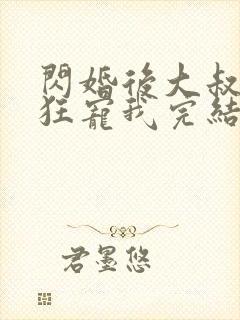 閃婚後大叔
狂寵我完結
君墨悠